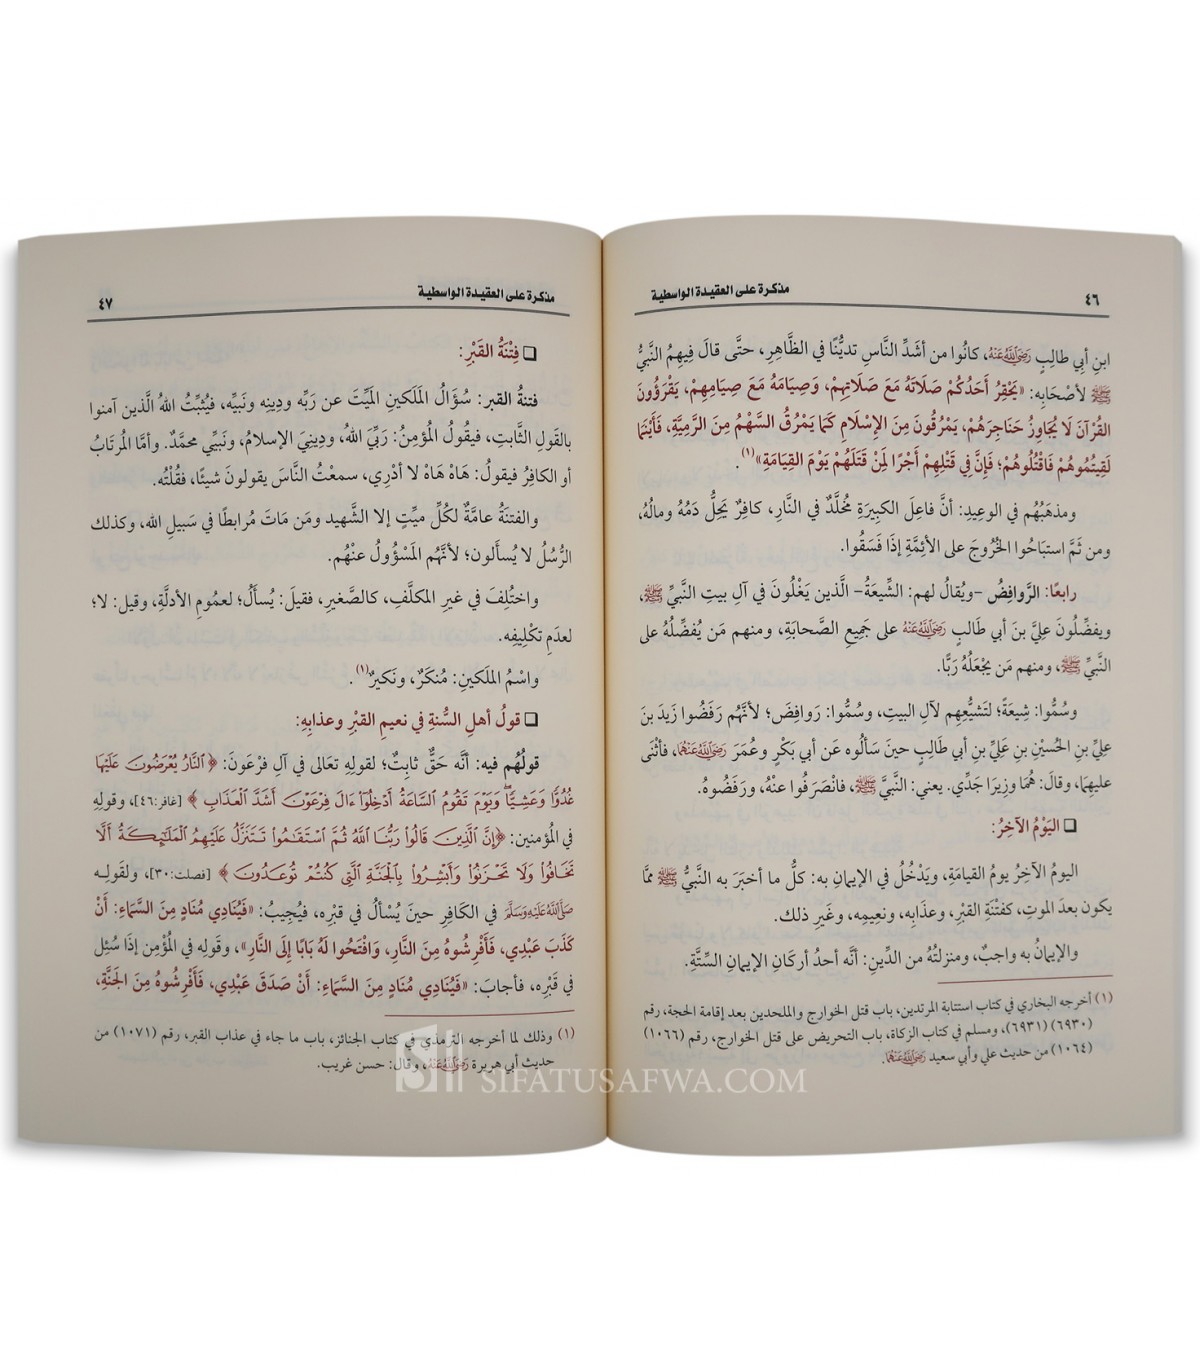 ٤٦
مذكرة على العقيدة الواسطية
ابنِ أبي طالِبٍ رَضِيَ اللَّهُ عَنْهُ، كانُوا من أشَدِّ النَّاسِ تديُّنًا في الظَّاهِرِ، حتَّى قالَ فِيهِمُ النَّبيُّ
ﷺ لأصْحَابِه: «يَحْقِرُ أَحَدُكُمْ صَلَاتَهُ مَعَ صَلَاتِهِمْ، وَصِيَامَهُ مَعَ صِيَامِهِمْ، يَقْرَؤُونَ
القُرْآنَ لَا يُجَاوِزُ حَنَاجِرَهُمْ، يَمْرُقُونَ مِنَ الإِسْلَامِ كَمَا يَمْرُقُ السَّهْمُ مِنَ الرَّمِيَّةِ، فَأَيْنَمَا
لَقِيتُمُوهُمْ فَاقْتُلُوهُمْ؛ فَإِنَّ فِي قَتْلِهِمْ أَجْرًا لِمَنْ قَتَلَهُمْ يَوْمَ القِيَامَةِ»(١).
ومذهَبُهُم في الوعِيدِ: أنَّ فاعِلَ الكبِيرَةِ مُخلَّدٌ في النَّارِ، كافِرٌ يَحِلُّ دَمُهُ ومالُهُ،
ومن ثَمَّ استبَاحُوا الخُرُوجَ على الأئِمَّةِ إذَا فَسَقُوا.
رابعًا: الرَّوافِضُ -ويُقالُ لهم: الشِّيعَةُ- الَّذين يَغْلُونَ في آلِ بيتِ النَّبيِّ ﷺ،
ويفضِّلُون عليَّ بنَ أبي طَالبٍ رَضِيَ اللَّهُ عَنْهُ على جَمِيعِ الصَّحابَةِ، ومنهم مَن يُفضِّلُهُ على
النَّبيِّ ﷺ، ومنهم مَن يجْعَلُهُ رَبًّا.
وسُمُّوا: شِيعَةً؛ لتَشيُّعِهِم لآلِ البيتِ، وسُمُّوا: رَوافِضَ؛ لأنَّهُم رَفَضُوا زَيدَ بنَ
عليِّ بنِ الحُسَيْنِ بنِ عَليِّ بنِ أبي طالِبٍ حينَ سَألُوه عَن أبي بَكْرٍ وعُمَرَ رَضِيَ اللَّهُ عَنْهُمَا، فأثْنَى
عليهِمَا، وقالَ: هُمَا وزِيرَا جَدِّي. يعني: النَّبيَّ ﷺ، فانْصَرَفُوا عنْهُ، ورَفَضُوهُ.
❏ اليَوْمُ الآخِرُ:
اليومُ الآخِرُ يومُ القيامَةِ، ويَدْخُلُ في الإيمانِ به: كلُّ ما أخبَرَ به النَّبيُّ ﷺ ممَّا
يكون بعدَ الموتِ، كفتْنَةِ القبْرِ، وعذابِه، ونعيمِه، وغَيرِ ذلك.
والإيمانُ به واجبٌ، ومنزلتُهُ من الدِّينِ: أنَّه أحدُ أركَانِ الإيمانِ السِّتَّةِ.
(١) أخرجه البخاري في كتاب استتابة المرتدين، باب قتل الخوارج والملحدين بعد إقامة الحجة، رقم
(٦٩٣٠) (٦٩٣١)، ومسلم في كتاب الزكاة، باب التحريض على قتل الخوارج، رقم (١٠٦٦)
(١٠٦٤) من حديث علي وأبي سعيد رَضِيَ اللَّهُ عَنْهُمَا.
مذكرة على العقيدة الواسطية
٤٧
❏ فِتْنَةُ القَبْرِ:
فتنةُ القبر: سُؤَالُ المَلَكينِ المَيِّتَ عن رَبِّه ودِينِه ونَبيِّه، فيُثبِّتُ اللهُ الَّذين آمنوا
بالقَولِ الثَّابتِ، فيقُولُ المُؤمِنُ: رَبِّيَ اللهُ، ودِينِيَ الإسلامُ، ونَبيِّي محمَّدٌ. وأمَّا المُرتَابُ
أو الكافِرُ فيقولُ: هَاهْ هَاهْ لا أدْرِي، سمعْتُ النَّاسَ يقولونَ شيئًا، فقُلْتُه.
والفتنَةُ عامَّةٌ لكُلِّ ميِّتٍ إلا الشَّهيد ومَن مَاتَ مُرابطًا في سَبيلِ الله، وكذلك
الرُّسُلُ لا يُسأَلون؛ لأنَّهُم المَسْؤُولُ عنْهُم.
واختُلِفَ في غيرِ المكلَّفِ، كالصَّغيرِ، فقيلَ: يُسألُ؛ لعمُومِ الأدلَّةِ، وقيل: لا؛
لعدَمِ تكْلِيفِه.
واسْمُ المَلَكينِ: مُنكَرٌ، ونَكيرٌ(١).
❏ قولُ أهلِ السُّنةِ في نعيمِ القبْرِ وعذابِهِ:
قولُهُم فيه: أنَّه حَقٌّ ثابِتٌ؛ لقولِهِ تعَالى في آلِ فرْعَونَ: ﴿النَّارُ يُعْرَضُونَ عَلَيْهَا
غُدُوًّا وَعَشِيًّا وَيَوْمَ تَقُومُ السَّاعَةُ أَدْخِلُوا ءَالَ فِرْعَوْنَ أَشَدَّ الْعَذَابِ﴾ [غافر:٤٦]، وقولِهِ
في المُؤمنين: ﴿إِنَّ الَّذِينَ قَالُوا رَبُّنَا اللَّهُ ثُمَّ اسْتَقَامُوا تَتَنَزَّلُ عَلَيْهِمُ الْمَلَائِكَةُ أَلَّا
تَخَافُوا وَلَا تَحْزَنُوا وَأَبْشِرُوا بِالْجَنَّةِ الَّتِي كُنْتُمْ تُوعَدُونَ﴾ [فصلت:٣٠]، ولقَولِـه
صَلَّى اللَّهُ عَلَيْهِ وَسَلَّمَ في الكَافِرِ حينَ يُسألُ في قبْرِه، فيُجيبُ: «فَيُنَادِي مُنَادٍ مِنَ السَّمَاءِ: أَنْ
كَذَبَ عَبْدِي، فَأَفْرِشُوهُ مِنَ النَّارِ، وَافْتَحُوا لَهُ بَابًا إِلَى النَّارِ»، وقَولِه في المُؤْمِنِ إذَا سُئِل
في قَبْرِه، فأجابَ: «فَيُنَادِي مُنَادٍ مِنَ السَّمَاءِ: أَنْ صَدَقَ عَبْدِي، فَأَفْرِشُوهُ مِنَ الجَنَّةِ،
(١) وذلك لما أخرجه الترمذي في كتاب الجنائز، باب ما جاء في عذاب القبر، رقم (١٠٧١) من
حديث أبي هريرة رَضِيَ اللَّهُ عَنْهُ، وقال: حسن غريب.
SIFATUSAFWA.COM